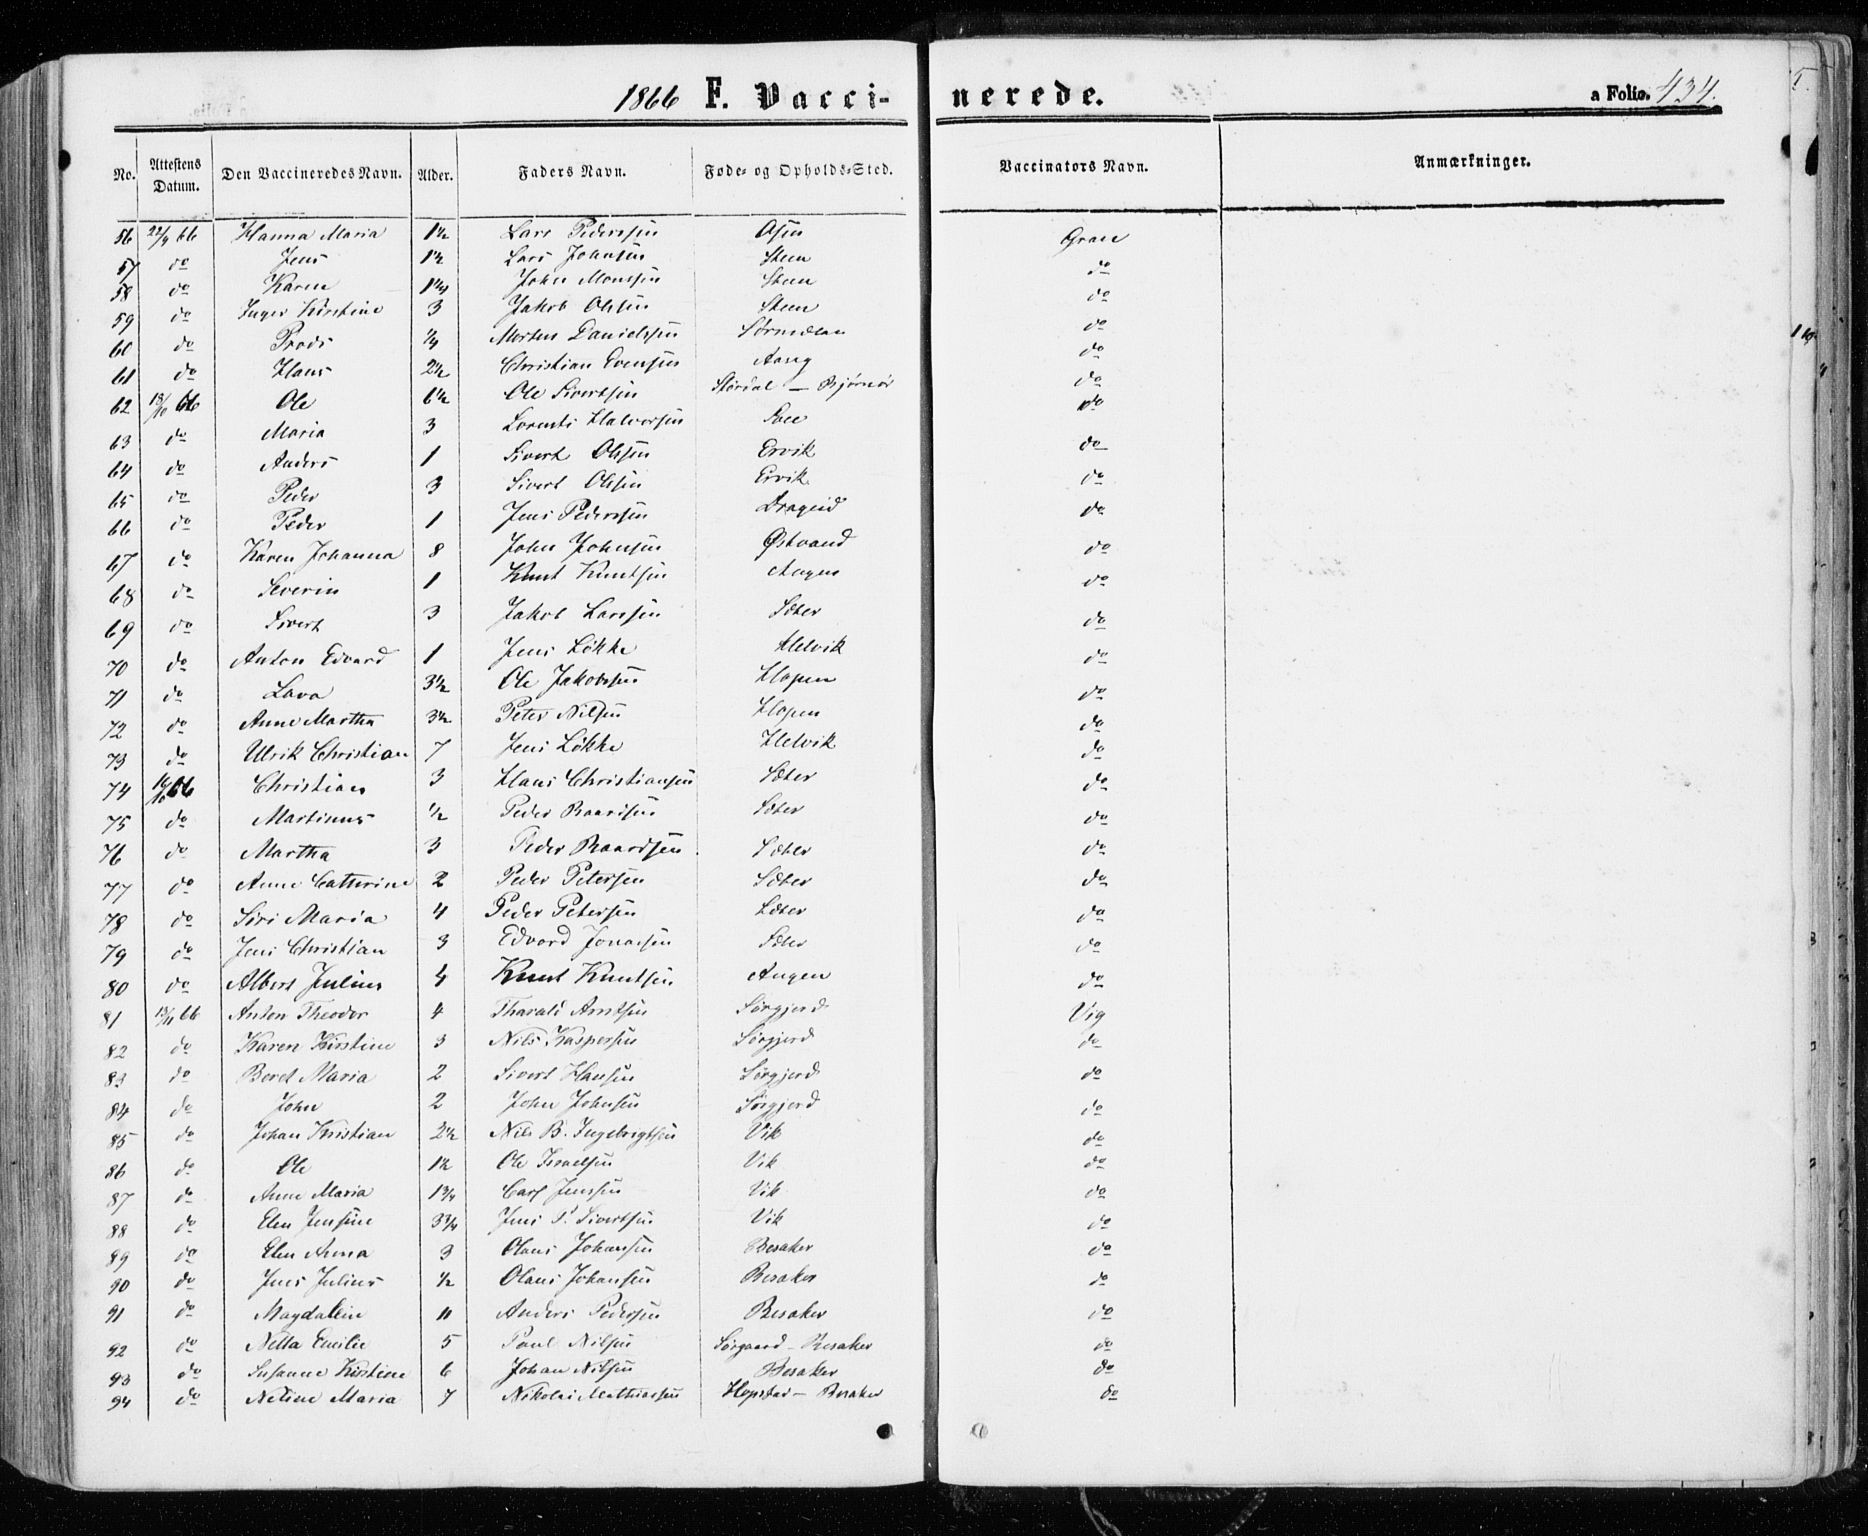 1866 F. Vaccinerede. a Folio. 434.
No. Attestens Datum. Den Vaccineredes Navn. Alder. Faders Navn. Føde- og Opholds-Sted. Vaccinators Navn. Anmærkninger.
56 22/9 66 Hanna Maria 1½ Lars Pederssen Osen
57 do Jens 1½ Lars Johnsen Steen do
58 do Karen 1¼ John Monssen Steen do
59 do Inger Kirstine 3 Jakob Olssen Steen do
60 do ¼ Morten Danielssen do
61 do Hans 2½ Christian Evensen do
62 18/10 66 Ole 6½ Ole Sivertsen Stordal – Bjørnør do
63 do Maria 3 Lorents Halvorsen do
64 do Anders 1 Sivert Olssen Ervik do
65 do Peder 3 Sivert Olssen Ervik do
66 do Peder 1 Jens Pederssen Drageid
67 do Karen Johanna 8 John Johnsen Østvand do
68 do Severin 1 Knut Knutsen Angen do
69 do Sivert 3 Jakob Larssen Sæter do
70 do Anton Edvard 1 Jens Løkke Helvik do
71 do Lava 3½ Ole Jakobssen Hopen do
72 do Anne Martha 3½ Peter Nilsen Hopen do
73 do Ulrik Christian 7 Jens Løkke Helvik do
74 66 Christian 3 Hans Christiansen Sæter do
75 do Martinus ½ Peder Baardsen Sæter do
76 do Martha 3 Peder Baardsen Sæter do
77 do Anne Catterine 2 Peder Petersen Sæter do
78 do Siri Maria 4 Peder Petersen Sæter do
79 do Jens Christian 3 Edvard Jonassen Sæter do
80 do Albert Julius 4 Knut Knutsen Angen do
81 13/11 66 Anton Theodor 4 Tharald Arntsen Sørgjerd Vig
82 do Karen Kirstine 3 Nils Kaspersen Sørgjerd do
83 do Beret Maria 2 Sivert Hansen Sørgjerd do
84 do John 2 John Johnsen Sørgjerd do
85 do Johan Kristian 2½ Nils B. Ingebrigtsen Vik do
86 do Ole 1½ Ole Israelsen Vik do
87 do Anne Maria 1¾ Carl Jenssen Vik do
88 do Elen Jensine 3¾ Jens P. Sivertsen Vik do
89 do Elen Anna 3 Olaus Johansen Besaker do
90 do Jens Julius ½ Olaus Johansen Besaker do
91 do Magdalein 11 Anders Pedersen Besaker do
92 do Netta Emilie 5 Paul Nilsen Sørgaard – Besaker do
93 do Susanne Kirstine 6 Johan Nilsen Besaker do
94 do Neline Maria 7 Nikolai Mathiassen Hopstad – Besaker do